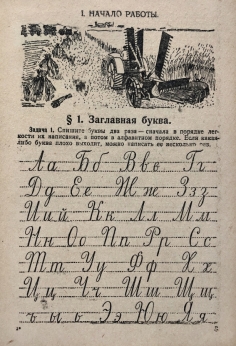 I. НАЧАЛО РАБОТЫ.
§ 1. Заглавная буква.
Задача 1. Спишите буквы два раза — сначала в порядке лег-
кости их написания, а потом в алфавитном порядке. Если какая-
либо буква плохо выходит, можно написать ее несколько раз.
Аа Бб Вв Гг
Дд Ее Жж Ззз
Ии Й Кк Лл Мм
Нн Оо Пп Рр Сс
Тт Уу Фф Хх
Цц Чч Шш Щщ
ъ ы ь Ээ Юю Яя